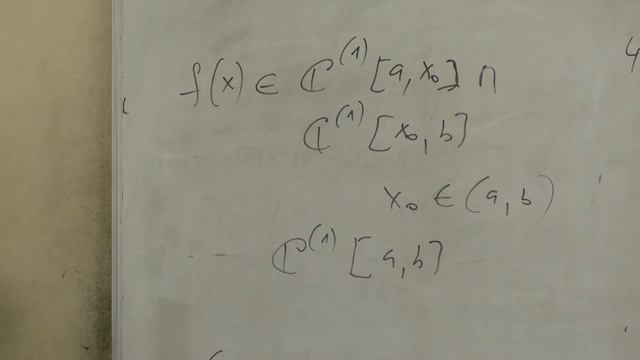 f(x) ∈ ℂ⁽¹⁾[a, x₀] ∩
ℂ⁽¹⁾[x₀, b]
x₀ ∈ (a, b)
ℂ⁽¹⁾[a, b]